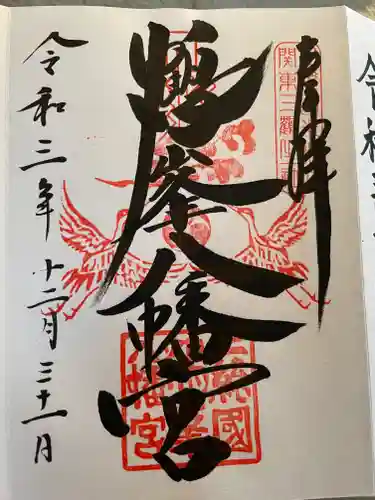 奉拝
鶴峯八幡宮
令和三年十二月三十一日
関東三
上総國
八幡宮
令和三